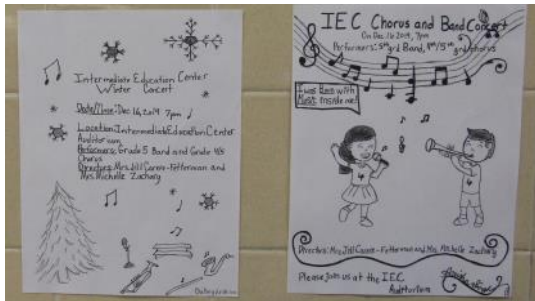 Intermediate Education Center
Winter Concert
Date/Time: Dec 16, 2019 7pm
Location: Intermediate Education Center
Auditorium
Performers: Grade 5 Band and Grade 4/5
Chorus
Directors: Mrs. Jill Carrie-Fetterman and
Mrs. Michelle Zachary
IEC Chorus and Band Concert
On Dec. 16 2019, 7pm
Performers: 5th grd Band, 4th/5th grd chorus
I was Born with
Music Inside me!
Directors: Mrs. Jill Carrie-Fetterman and Mrs. Michelle Zachary
Please join us at the IEC
Auditorium